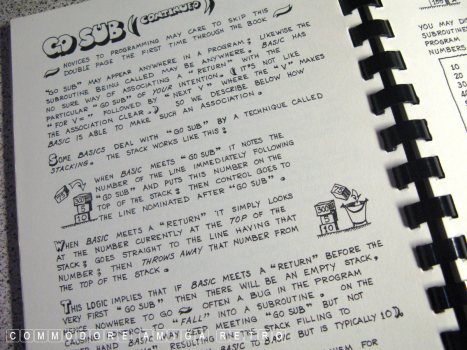 GO SUB (CONTINUED)
NOVICES TO PROGRAMMING MAY CARE TO SKIP THIS
DOUBLE PAGE THE FIRST TIME THROUGH THE BOOK
"GO SUB" MAY APPEAR ANYWHERE IN A PROGRAM; LIKEWISE THE
SUBROUTINE BEING CALLED MAY BE ANYWHERE. BASIC HAS
NO SURE WAY OF ASSOCIATING A "RETURN" WITH THE
PARTICULAR "GO SUB" OF YOUR INTENTION. (IT'S NOT LIKE
"FOR V=" FOLLOWED BY "NEXT V" WHERE THE "V" MAKES
THE ASSOCIATION CLEAR.) SO WE DESCRIBE BELOW HOW
BASIC IS ABLE TO MAKE SUCH AN ASSOCIATION.
SOME BASICS DEAL WITH "GO SUB" BY A TECHNIQUE CALLED
STACKING. THE STACK WORKS LIKE THIS:
WHEN BASIC MEETS "GO SUB" IT NOTES THE
NUMBER OF THE LINE IMMEDIATELY FOLLOWING
"GO SUB" AND PUTS THIS NUMBER ON THE
TOP OF THE STACK; THEN CONTROL GOES TO
THE LINE NOMINATED AFTER "GO SUB".
WHEN BASIC MEETS A "RETURN" IT SIMPLY LOOKS
AT THE NUMBER CURRENTLY AT THE TOP OF THE
STACK; GOES STRAIGHT TO THE LINE HAVING THAT
NUMBER; THEN THROWS AWAY THAT NUMBER FROM
THE TOP OF THE STACK.
THIS LOGIC IMPLIES THAT IF BASIC MEETS A "RETURN" BEFORE THE
VERY FIRST "GO SUB" THEN THERE WILL BE AN EMPTY STACK,
HENCE NOWHERE TO GO OFTEN A BUG IN THE PROGRAM
CAUSES CONTROL TO "FALL" INTO A SUBROUTINE. ON THE
HAND BASIC MAY KEEP MEETING "GO SUB" BUT NOT
RESULTING IN THE STACK FILLING TO
BASIC TO BASIC BUT IS TYPICALLY 10).
YOU MAY
SUBROUTINE
PROGRAM
NUMBERS
10
COMMODORE AMIGA RETRO